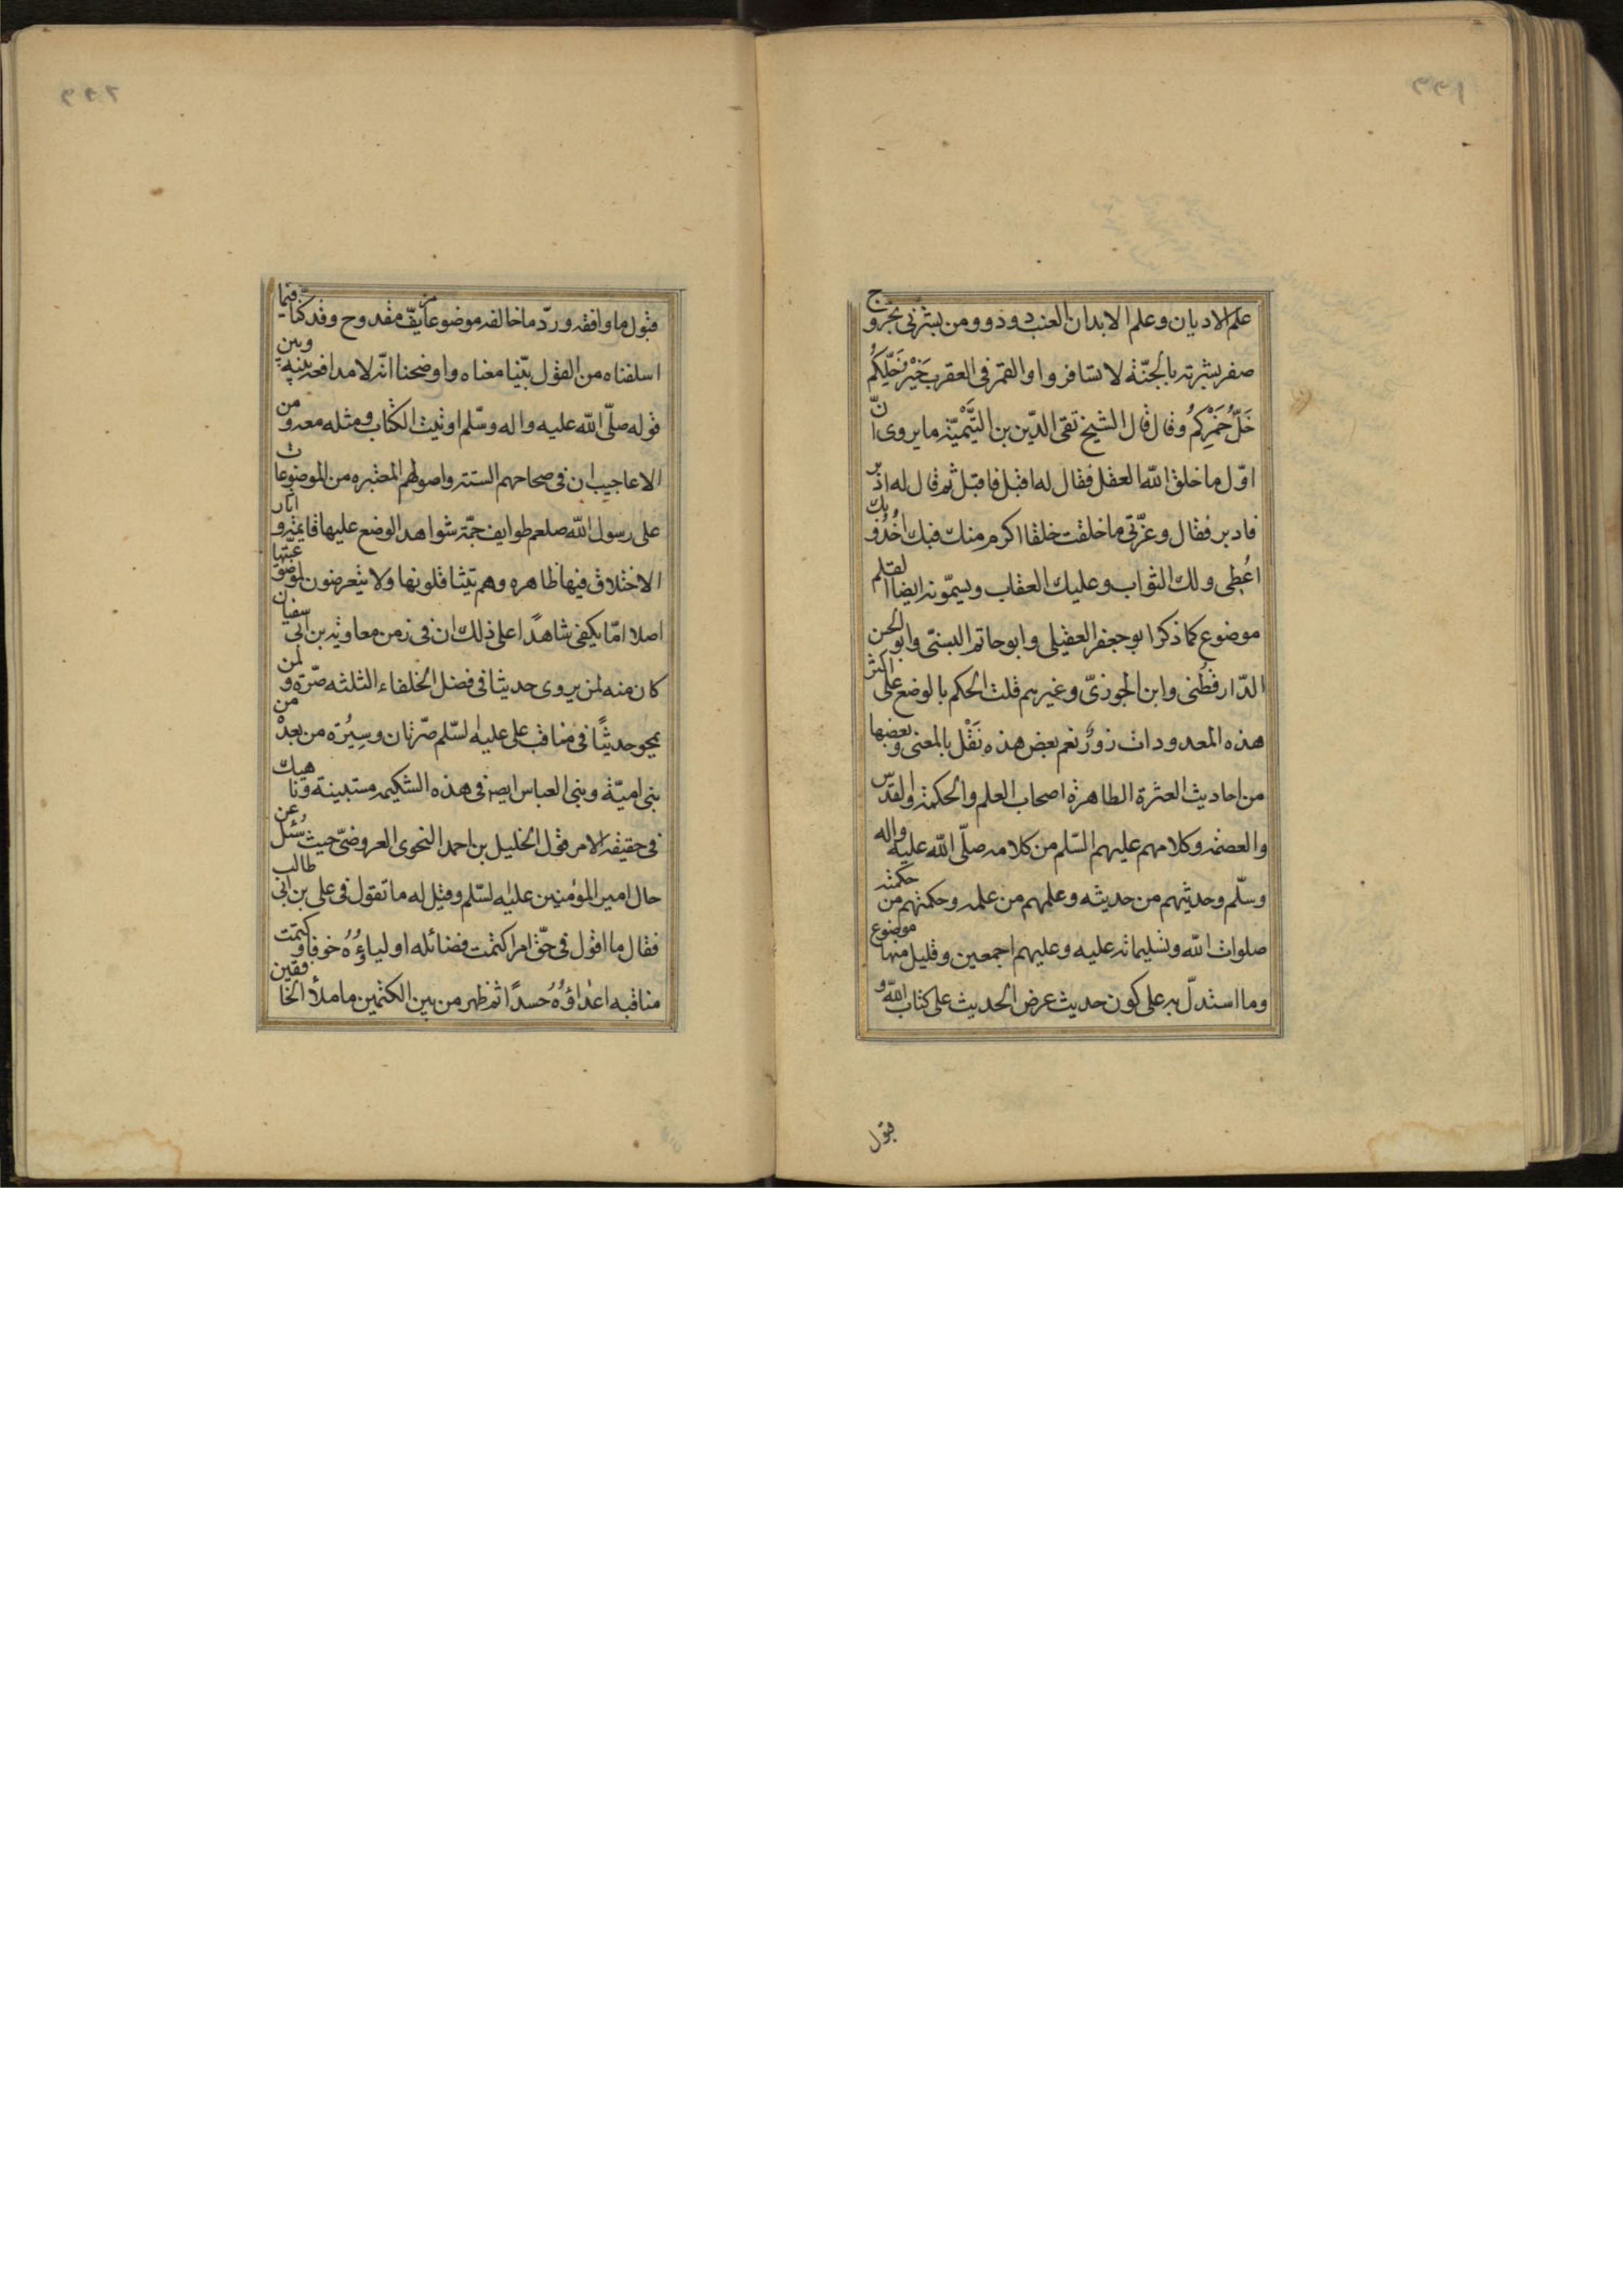 علم الاديان وعلم الابدان العنب دو دو ومن بشّرنى بخروج
صفر بشّرته بالجنّة لا تسافروا والقمر فى العقرب خَيْر خَلّكُم
خَلّ خَمْرِكُم وقال قال الشيخ تقى الدّين بن التَّيْميّة ما يروى انّ
اوّل ما خلق اللّه العقل فقال له اقبل فاقبل ثم قال له ادبر
فادبر فقال وعزّتى ما خلقت خلقا اكرم منك فبك اخُذُ وبك
اُعْطى ولك الثواب وعليك العقاب ويسمّونه ايضا القلم
موضوع كما ذكر ابو جعفر العقيلى وابو حاتم البستى وابو الحسن
الدّارقطُنى وابن الجوزىّ وغيرهم قلت الحكم بالوضع على اكثر
هذه المعدودات زورٌ نعم بعض هذه نَقْل بالمعنى وبعضها
من احاديث العترة الطاهرة اصحاب العلم والحكمة والقدّس
والعصمة وكلامهم عليهم السّلم من كلامه صلّى اللّه عليه واله
وسلّم وحديثهم من حديثه وعلمهم من علمه وحكمتهم من حكمته
صلوات اللّه وتسليماته عليه وعليهم اجمعين وقليل منها موضوع
وما استدلّ به على كون حديث عرض الحديث على كتاب اللّه و
قبول
قبول ما وافقه وردّ ما خالفه موضوعا مزيّف مقدوح وقد كنّا فيما
اسلفناه من القول بيّنا معناه واوضحنا انّه لا مدافعة بينه وبين
قوله صلّى اللّه عليه واله وسلّم اوتيت الكتاب ومثله معه ومن
الاعاجيب ان فى صحاحهم الستة واصولهم المعتبره من الموضوعات
على رسول اللّه صلعم طوايف جمّة شواهد الوضع عليها قايمة واثار
الاختلاق فيها ظاهره وهم يتثاقلونها ولا يتعرضون لوضعيّتها
اصلا امّا يكفى شاهدًا على ذلك ان فى زمن معاوية بن ابى سفيان
كان منه لمن يروى حديثا فى فضل الخلفاء الثلثه صرّة ولمن
يمحو حديثًا فى مناقب على عليه السّلم صرّتان وسِيْرَة من بعدْه من
بنى اميّة وبنى العباس ايضا فى هذه الشكيمه مستبينة وناهيك
فى حقيقة الامر قول الخليل بن احمد النحوى العروضىّ حيث سُئل عن
حال امير المؤمنين عليه السّلم وقيل له ما تقول فى على بن ابى طالب
فقال ما اقول فى حقّ امرا كتمت فضائله اولياؤُهُ خوفا وكتمت
مناقبه اعداؤُهُ حسدًا ثم ظهر من بين الكتمين ما ملأ الخافقين